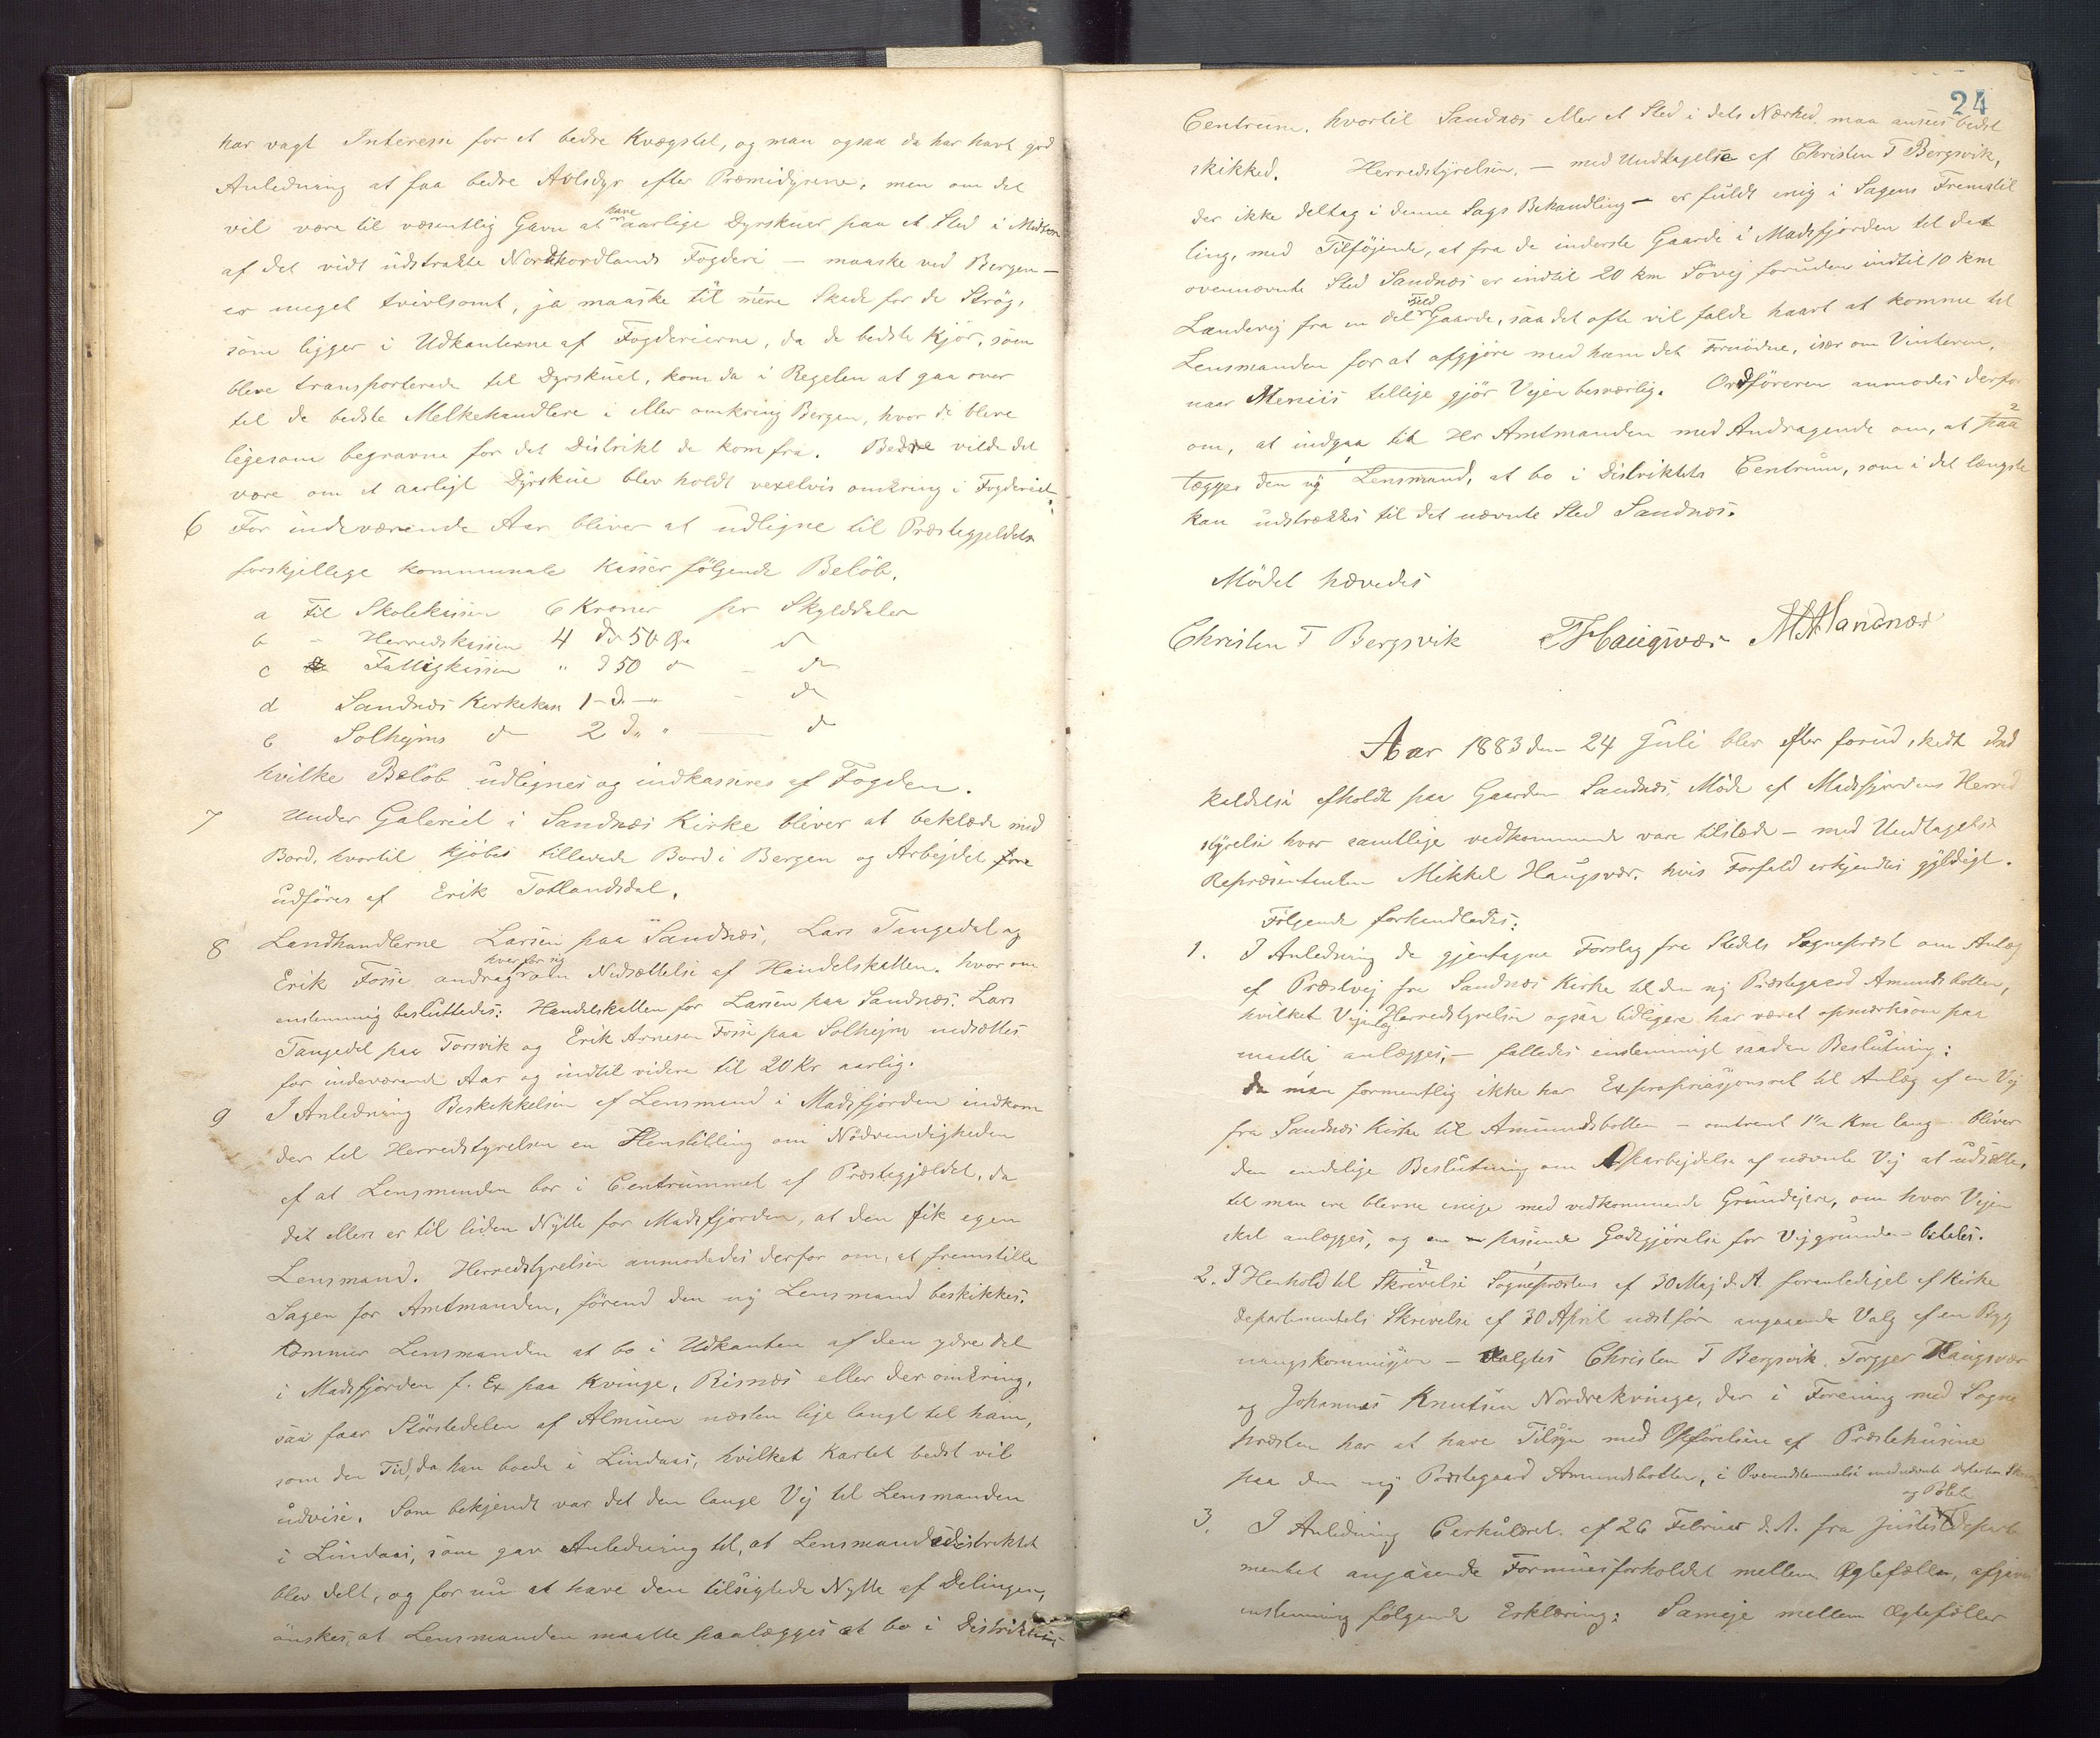 har vagt Interesse for et bedre Kvægstel, og man ogsaa da har havt god
Anledning at faa bedre Avlsdyr efter Præmidyrene, men om det
vil være til væsentlig Gavn at have aarlige Dyrskuer paa et Sted i Midten
af det vidt udstrakte Nordhordlands Fogderi — maaske ved Bergen —
er meget tvivlsomt, ja maaske til mere Skade for de Strøg,
som ligger i Udkanterne af Fogderierne, da de bedste Kjør, som
bleve transporterede til Dyrskuet, kom da i Regelen at gaa over
til de bedste Melkehandlere i eller omkring Bergen, hvor de bleve
ligesom begravne for det Distrikt de kom fra. Bedre vilde det
være om et aarligt Dyrskue blev holdt vexelvis omkring i Fogderiet.
6 For indeværende Aar bliver at udligne til Præstegjeldets
forskjellige kommunale Kasser følgende Beløb.
a Til Skolekassen 6 Kroner pr Skylddaler
b - Herredskassen 4 do 50 Øre do
c Fattigkassen " do 50 do - do
d Sandnæs Kirkekas 1 - do - " - do
e Solhejms do 2 do " - do
hvilke Beløb udlignes og indkasseres af Fogden.
7 Under Galeriet i Sandnæs Kirke bliver at beklæde med
Bord, hvortil kjøbes tillavede Bord i Bergen og Arbejdet
udføres af Erik Totlandsdal.
8 Landhandlerne Larsen paa Sandnæs, Lars Tangedal og
Erik Fosse andrag hver for sig om Nedsættelse af Handelskatten. hvor om
enstemmig besluttedes: Handelskatten for Larsen paa Sandnæs. Lars
Tangedal paa Torsvik og Erik Arnesen Fosse paa Solhejm nedsættes
for indeværende Aar og indtil videre til 20 Kr aarlig.
9 I Anledning Beskikkelsen af Lensmand i Masfjorden indkom
der til Herredstyrelsen en Henstilling om Nødvendigheden
af at Lensmanden bor i Centrummet af Præstegjældet, da
det ellers er til liden Nytte for Masfjorden, at den fik egen
Lensmand. Herredstyrelsen anmodedes derfor om, at fremstille
Sagen for Amtmanden, førend den ny Lensmand beskikkes.
Kommer Lensmanden at bo i Udkanten af den ydre del
i Masfjorden f. Ex paa Kvinge, Risnæs eller der omkring,
saa faar Størstedelen af Almuen næsten lige langt til ham,
som den Tid, da han boede i Lindaas, hvilket Kartet bedst vil
udvise. Som bekjendt var det den lange Vej til Lensmanden
i Lindaas, som gav Anledning til, at Lensmandsdistriktet
blev delt, og for nu at have den tilsigtede Nytte af Delingen,
ønskes, at Lensmanden maatte paalægges at bo i Distriktets
24
Centrum, hvortil Sandnæs eller et Sted i dets Nærhed maa ansees bedst
skikked. Herredstyrelsen, — med Undtagelse af Christen T Bergsvik,
der ikke deltog i denne Sags Behandling — er fuldt enig i Sagens Fremstil
ling, med Tilføjende, at fra de inderste Gaarde i Masfjorden til det
ovennævnte Sted Sandnæs er indtil 20 km Søvej foruden indtil 10 km
Landevej fra en del Field Gaarde, saa det ofte vil falde haart at komme til
Lensmanden for at afgjøre med ham det Fornødne, især om Vinteren,
naar Meniis tillige gjør Vejen besværlig. Ordføreren anmodes derfor
om, at indgaa til Hr Amtmanden med Andragende om, at paa
lægges den ny Lensmand, at bo i Distriktets Centrum, som i det længste
kan udstrækkes til det nævnte Sted Sandnæs.
Mødet hævedes
Christen T Bergsvik T Haugsvær MA Sandnæs
Aar 1883 den 24 Juli blev efter forud skedt Ind
kaldelse afholdt paa Gaarden Sandnæs, Møde af Masfjordens Herred
styrelse hvor samtlige vedkommende vare tilstede — med Undtagelse
Repræsentanten Mikkel Haugsvær, hvis Forfald erkjendtes gyldigt.
Følgende forhandledes:
1. I Anledning de gjentagne Forslag fra Stedets Sogneprest om Anlæg
af Præstvej fra Sandnæs Kirke til den ny Præstegaard Amundsbotten,
hvilket Vejanlæg Herredstyrelsen ogsaa tidligere har været opmærksom paa
maatte anlægges, — fattedes enstemmigt saadan Beslutning:
da man formentlig ikke har Expropriasjonsret til Anlæg af en Vej
fra Sandnæs Kirke til Amundsbotten — omtrent 1½ Km lang — bliver
den endelige Beslutning om Oparbejdelse af nævnte Vej at udsætte,
til man ere blevne enige med vedkommende Grundejere, om hvor Vejen
skal anlægges, og passende Godtgjørelse for Vejgrunden betales.
2. I Henhold til Skrivelse Sogneprestens af 30 Maj d. A. foranlediget af Kirke
departementets Skrivelse af 30 April næstfør angaaende Valg af en Byg
ningskommisjon — valgtes Christen T Bergsvik, Torgjer Haugsvær
og Johannes Knutsen Nordrekvinge, der i Forening med Sogne
presten har at have Tilsyn med Opførelsen af Præstehusene
paa den ny Præstegaard Amundsbotten, i Overensstemmelse med nævnte
3. I Anledning Cirkulæret af 26 Februar d. A. fra Justis og Politi Departe
mentet angaaende Formuesforholdet mellem Ægtefæller, afgives
enstemmig følgende Erklæring: Sameje mellem Ægtefæller